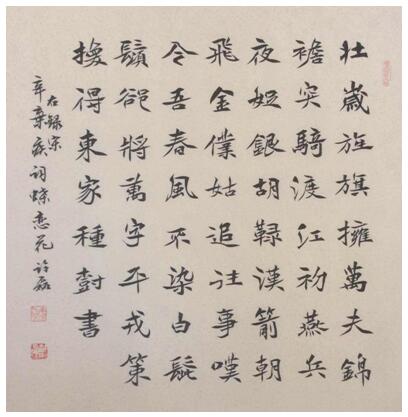 壯歲旌旗擁萬夫錦
襜突騎渡江初燕兵
夜娖銀胡䩮漢箭朝
飛金僕姑追往事嘆
今吾春風不染白髭
鬚卻將萬字平戎策
換得東家種樹書
右錄宋
辛棄疾詞蝶恋花 许磊